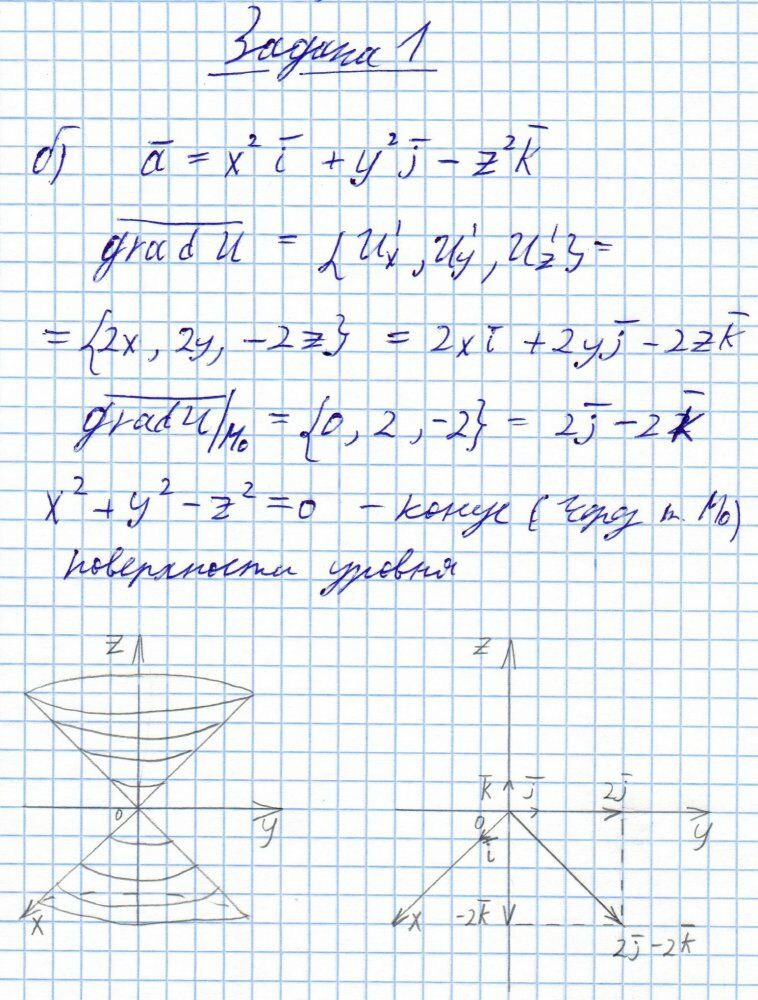 Задача 1
б) a̅ = x² i̅ + y² j̅ − z² k̅
grad U = {U'x, U'y, U'z} =
= {2x, 2y, −2z} = 2x i̅ + 2y j̅ − 2z k̅
grad U|M₀ = {0, 2, −2} = 2j̅ − 2k̅
x² + y² − z² = 0 – конус (через т. M₀)
поверхности уровня
z
y
x
0
z
k̅ j̅ 2j̅
0
i̅
y
x
−2k̅
2j̅ − 2k̅